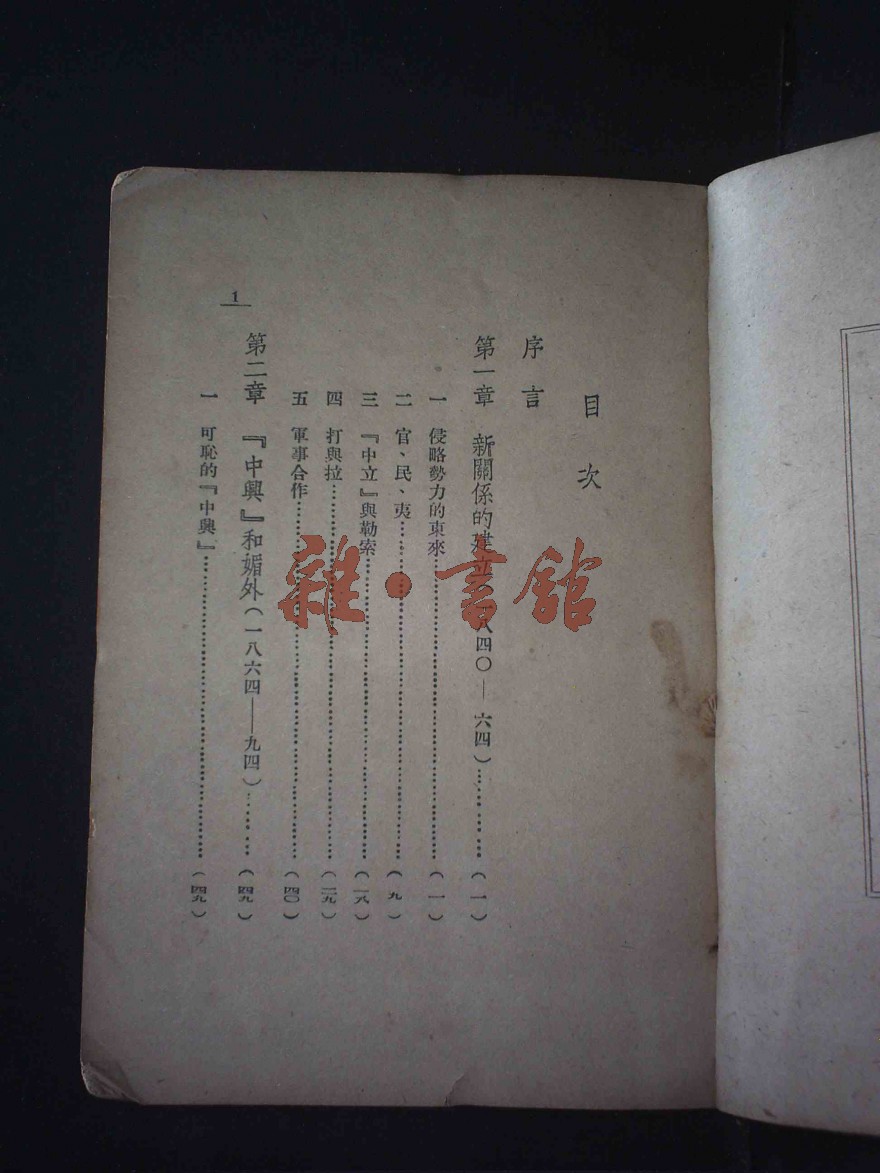 目次
序言
第一章 新關係的建立(一八四〇—六四)……(一)
一 侵略勢力的東來……(一)
二 官、民、夷……(九)
三 『中立』與勒索……(一八)
四 打與拉……(二九)
五 軍事合作……(四〇)
第二章 『中興』和媚外(一八六四—九四)……(四九)
一 可恥的『中興』……(四九)
1
雜·書館